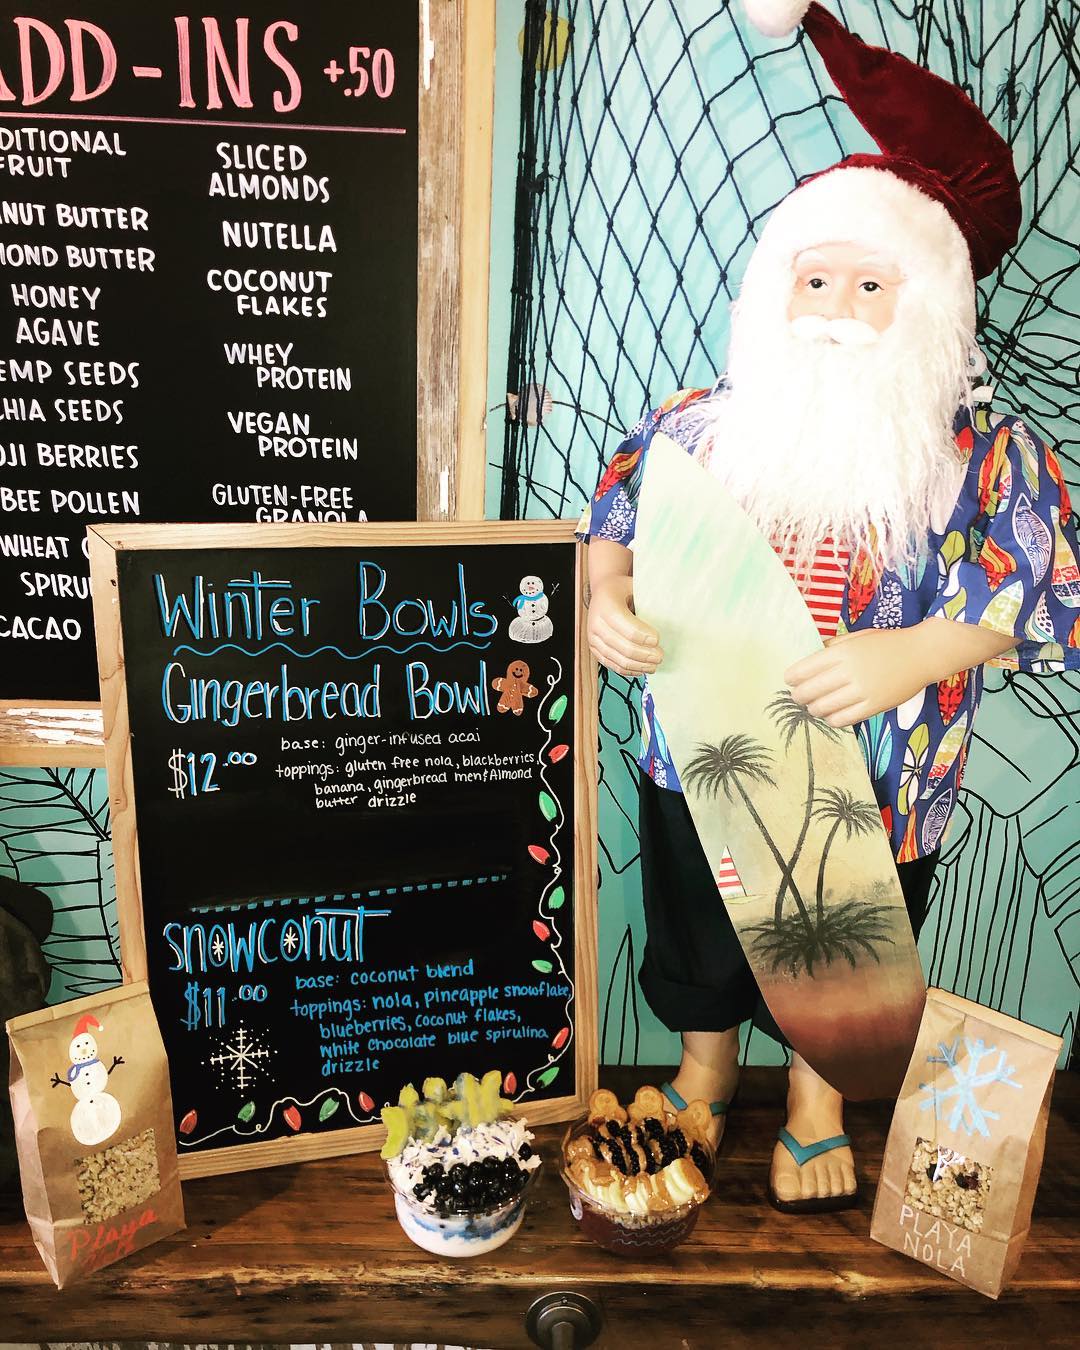 ADD-INS +.50
DITIONAL
FRUIT
NUT BUTTER
MOND BUTTER
HONEY
AGAVE
EMP SEEDS
CHIA SEEDS
OJI BERRIES
BEE POLLEN
WHEAT
SPIRU
CACAO
SLICED
ALMONDS
NUTELLA
COCONUT
FLAKES
WHEY
PROTEIN
VEGAN
PROTEIN
GLUTEN-FREE
GRANOLA
Winter Bowls
Gingerbread Bowl
$12.00
base: ginger-infused acai
toppings: gluten free nola, blackberries,
banana, gingerbread men & Almond
butter drizzle
snowconut
$11.00
base: coconut blend
toppings: nola, pineapple snowflake,
blueberries, coconut flakes,
white chocolate blue spirulina
drizzle
Playa
PLAYA
NOLA